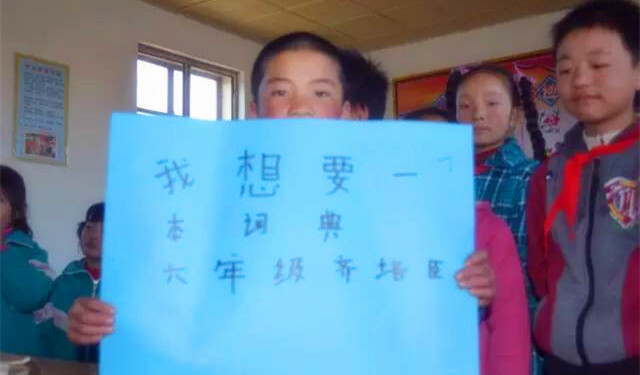 我想要一
本词典
六年级齐培臣